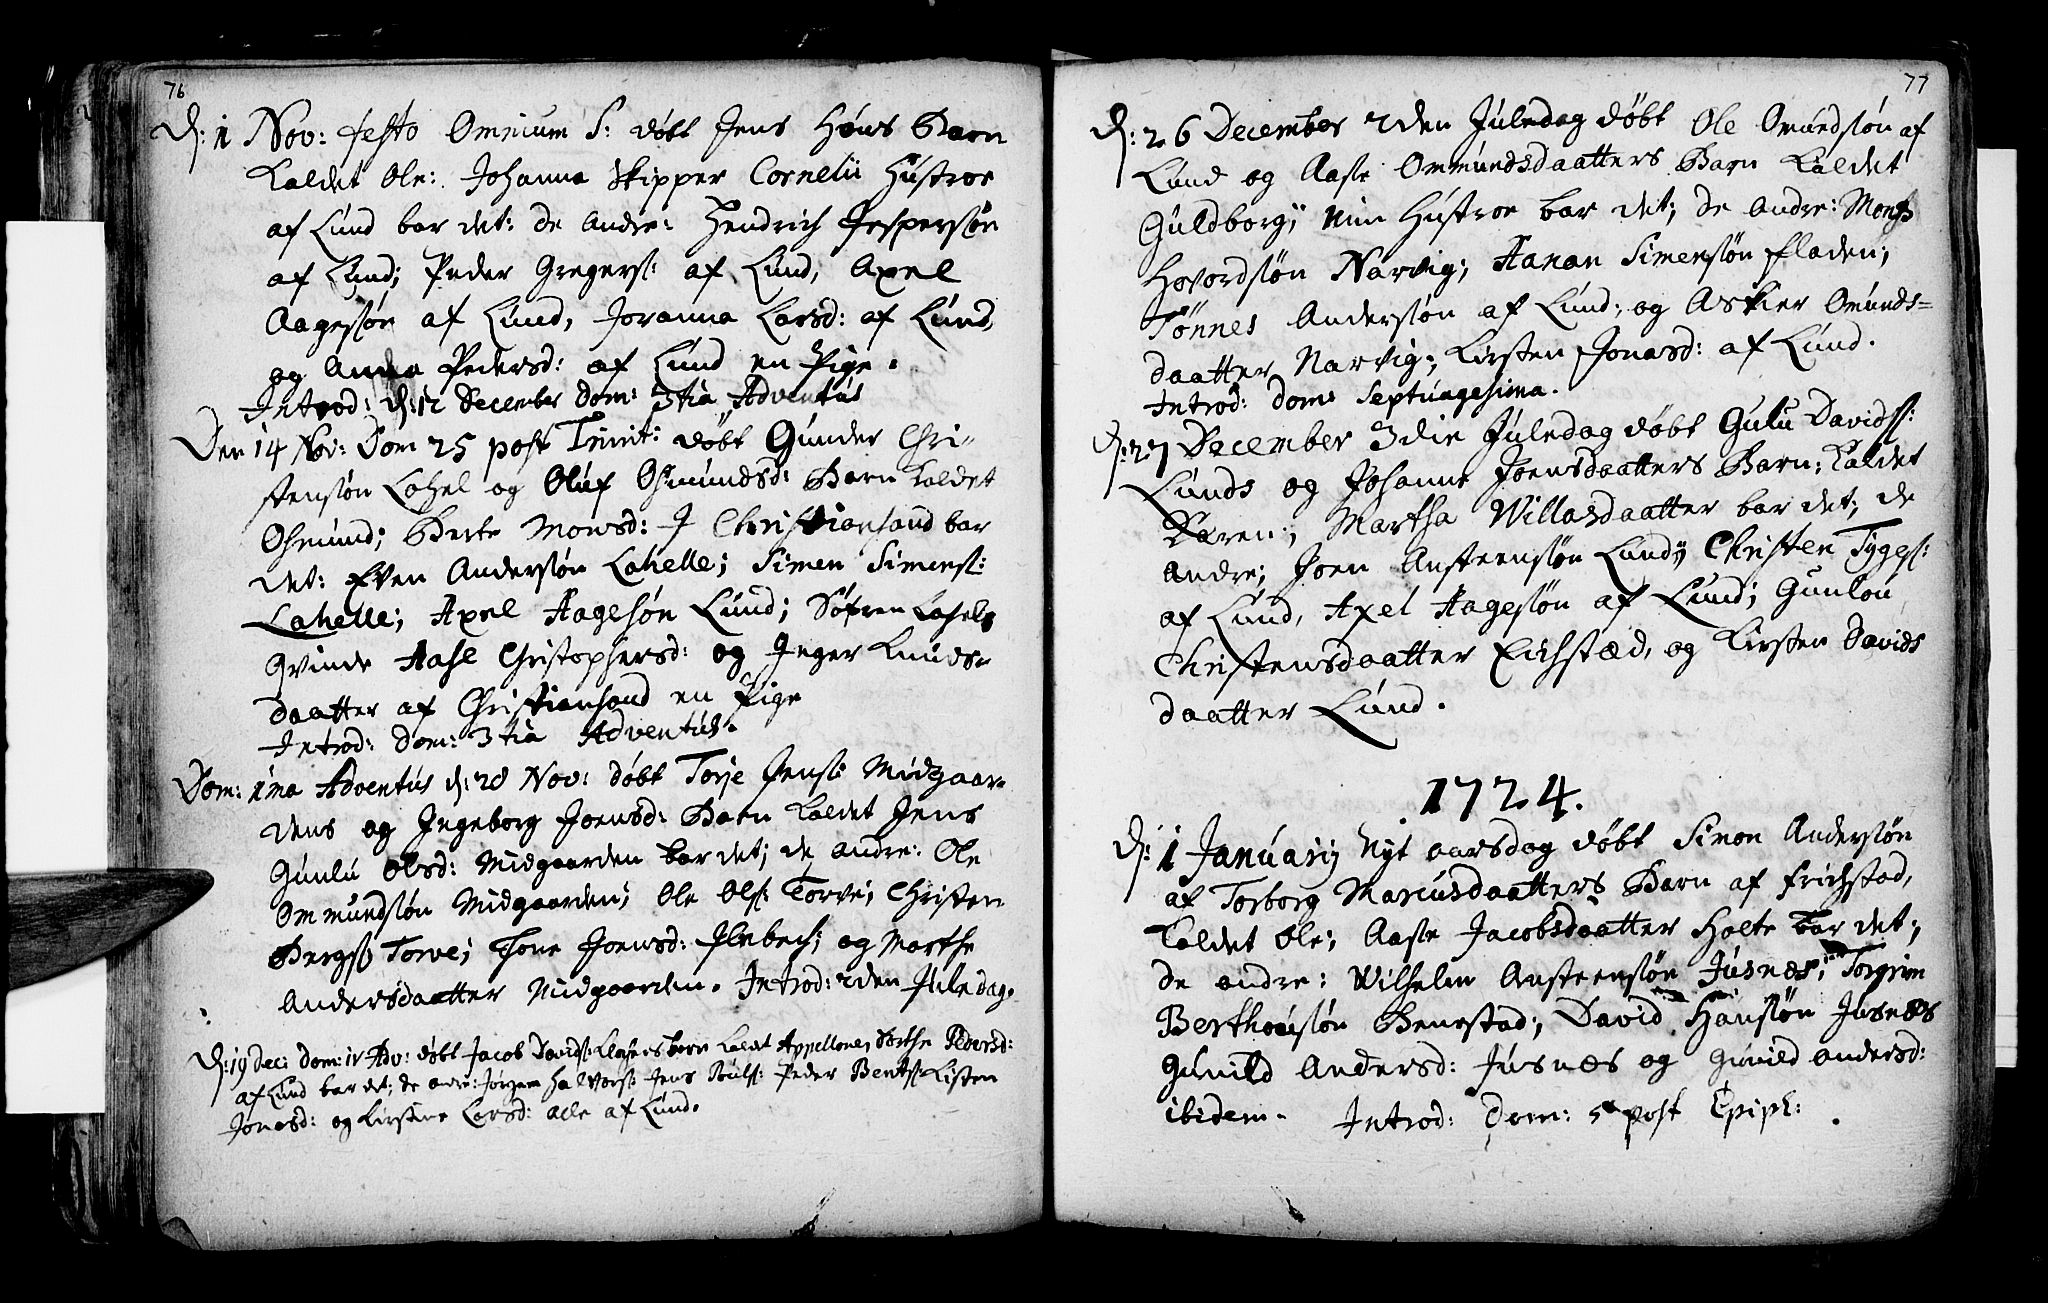 76
D: 1 Nov: festo Omnium S: døbt Jens Høns Barn
kaldet Ole: Johanna Skipper Cornelii Hústroe
af Lúnd bar det: de Andre: Hendrich Jespersøn
af Lúnd; Peder Gregers: af Lúnd, Axel
Aagesøn af Lúnd, Joranna Larsd: af Lúnd
og Anna Pedersd: af Lúnd en Pige.
Introd: d: 12 December Dom: 3tia Adventús
Den 14 Nov: Dom 25 post Trinit: døbt Gunder Chri-
stensøn Lahel og Olúf Osmúndsd: Barn kaldet
Osmúnd; Berte Monsd: I Christiansand bar
det: Even Andersøn Lahelle; Simen Simens:
Lahelle; Axel Aagesøn Lúnd; Søfren Lahels
Qvinde Aase Christophersd: og Inger Knúds-
daatter af Christiansand en Pige
Introd: Dom: 3tia Adventús.
Dom: 1ma Adventús d: 28 Nov: døbt Torje Jens: Midgaar-
dens og Ingeborg Joensd: Barn kaldet Jens
Gunlú Olsd: Midgaarden bar det; de andre: Ole
Ommundsøn Midgaarden; Ole Ols: Torve; Christen
Bergs: Torve; Tone Joensd: Ilebech; og Marthe
Andersdaatter Midgaarden. Introd: 2den Júledag.
D: 19 Dec: Dom: IV Adv: døbt Jacob Davids: barn kaldt Appellone, Dorthe Pedersd:
af Lúnd bar det; de andre: Jørgen Halvors: Jens Pouls: Peder Bents: Kisten
Jonasd: og Kirstine Larsd: alle af Lúnd.
77
D: 26 December 2den Júledag døbt Ole Omúndsøn af
Lúnd og Aase Ommúndsdaatters Barn kaldet
Gúldborg; min Hústroe bar det; de andre: Mons
Hovordsøn Narvig; Aanan Simensøn Fladen;
Tönnes Andersøn af Lúnd; og Askier Omúnds=
daatter Narvig; Kirsten Jonasd: af Lúnd.
Introd: Dom: Septúagesima.
D: 27 December 3die Júledag døbt Gulu Davids:
Lúnds og Johanne Joensdaatters Barn; kaldet
Karen; Martha Willasdaatter bar det; de
andre; Joen Ansteensøn Lúnd; Christen Tyges:
af Lúnd, Axel Aagesøn af Lúnd; Gunlou
Christensdaatter Eichstæd, og Kirsten Davids
daatter Lúnd.
1724.
D: 1 Januarij Nyt aarsdag døbt Simon Andersøn
af Torborg Marcusdaatters Barn af Frichstad,
kaldet Ole; Aase Jacobsdaatter Holte bar det;
de andre: Wilhelm Ansteensøn Júsnæs; Torgrim
Berthousøn Benestad; David Hansøn Júsnæs
Gunild Andersd: Júsnæs og Gunild Andersd:
ibidem. Introd: Dom: 5 post Epiph: